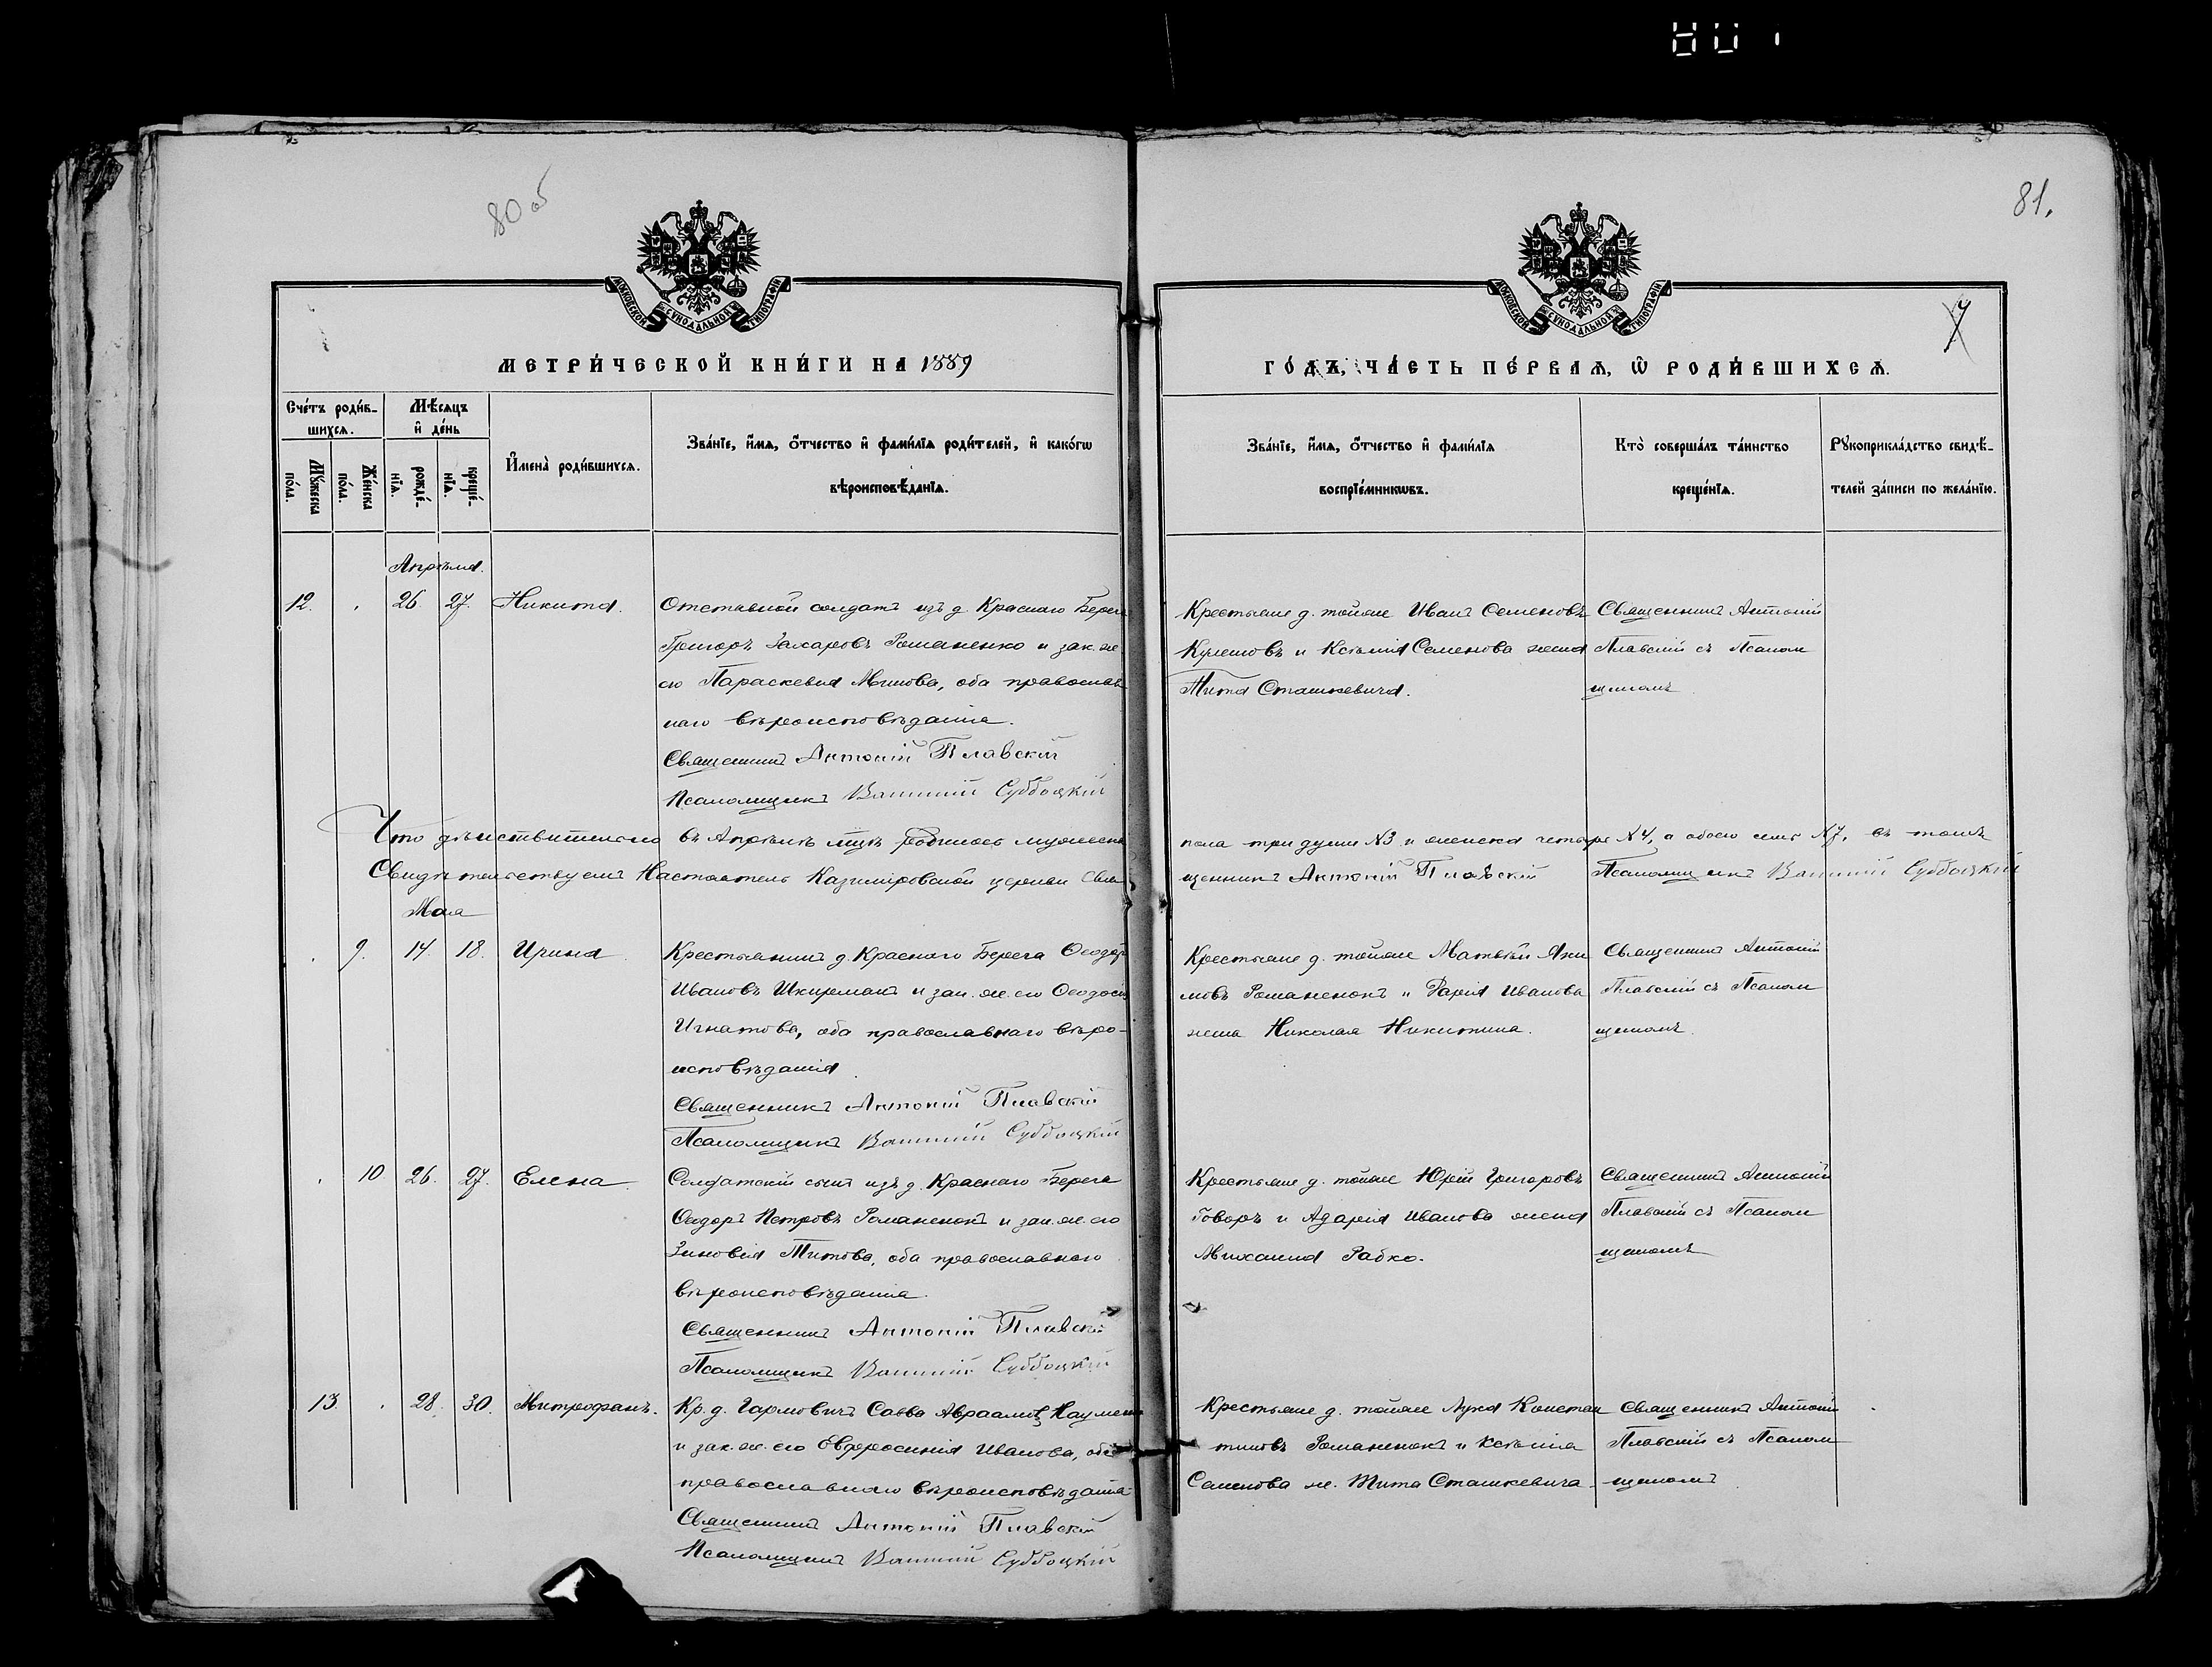 80 об
81.
МОСКОВСКОЙ СѴНОДАЛЬНОЙ ТИПОГРАФІИ
МОСКОВСКОЙ СѴНОДАЛЬНОЙ ТИПОГРАФІИ
МЕТРИ́ЧЕСКОЙ КНИ́ГИ НА 1889
ГО́ДЪ, ЧА́СТЬ ПЕ́РВАѦ, Ѡ҆ РОДИ́ВШИХСѦ.
Сче́тъ роди́в-
шихсѧ.
Мѣ́сѧцъ
и҆ де́нь
Мꙋ́жеска
по́ла.
Же́нска
по́ла.
рожде́-
нїѧ.
креще́-
нїѧ.
И҆мена̀ роди́вшихсѧ.
Зва́нїе, и҆́мѧ, ѻ҆́тчество и҆ фами́лїѧ роди́телей, и҆ како́гѡ
вѣроисповѣ́данїѧ.
Зва́нїе, и҆́мѧ, ѻ҆́тчество и҆ фами́лїѧ
воспрїе́мникѡвъ.
Кто̀ соверша́лъ та́инство
креще́нїѧ.
Рꙋкоприкла́дство свидѣ́-
телей за́писи по жела́нїю.
Апрѣля.
12. 26. 27. Никита.
Отставной солдатъ изъ д. Краснаго Берега
Григоръ Захаровъ Романенко и зак. же.
его Параскевія Минова, оба православ
наго вѣроисповѣданія.
Священникъ Антоній Плавскій
Псаломщикъ Субботскій
Крестьяне д. тойже Иванъ Семеновъ
Кулешовъ и Ксенія Семенова жена
Тита Сташкевича.
Священникъ Антоній
Плавскій съ Псалом
щикомъ
Что дѣйствительно въ Апрѣлѣ мцѣ родилось мужеска
пола три души №3 и женска четыре №4, а обоего семь №7, въ томъ
Свидѣтельствуемъ Настоятель Казимировской церкви Свя
щенникъ Антоній Плавскій Псаломщикъ Субботскій
Мая
9. 14. 18. Ирина
Крестьянинъ д. Краснаго Берега Ѳеодоръ
Ивановъ Шкирманъ и зак. же. его Ѳеодосія
Игнатова, оба православнаго вѣро-
исповѣданія.
Священникъ Антоній Плавскій
Псаломщикъ Субботскій
Крестьяне д. тойже Матвѣй Яки
мовъ Романенокъ и Дарія Иванова
жена Николая Никитина.
Священникъ Антоній
Плавскій съ Псалом
щикомъ
10 26. 27. Елена
Солдатскій сынъ изъ д. Краснаго Берега
Ѳеодоръ Петровъ Романенокъ и зак. же. его
Зиновія Титова, оба православнаго
вѣроисповѣданія.
Священникъ Антоній Плавскій
Псаломщикъ Субботскій
Крестьяне д. тойже Юрій Григоровъ
Говоръ и Адарія Иванова жена
Михаила Рабко.
Священникъ Антоній
Плавскій съ Псалом
щикомъ
13. 28. 30. Митрофанъ.
Кр. д. Гармовичъ Савва Авраамовъ Наумен
и зак. же. его Евфросинія Иванова, оба
православнаго вѣроисповѣданія
Священникъ Антоній Плавскій
Псаломщикъ Субботскій
Крестьяне д. тойже Лука Констан
тиновъ Романенокъ и Ксенія
Семенова ж. Тита Сташкевича.
Священникъ Антоній
Плавскій съ Псалом
щикомъ